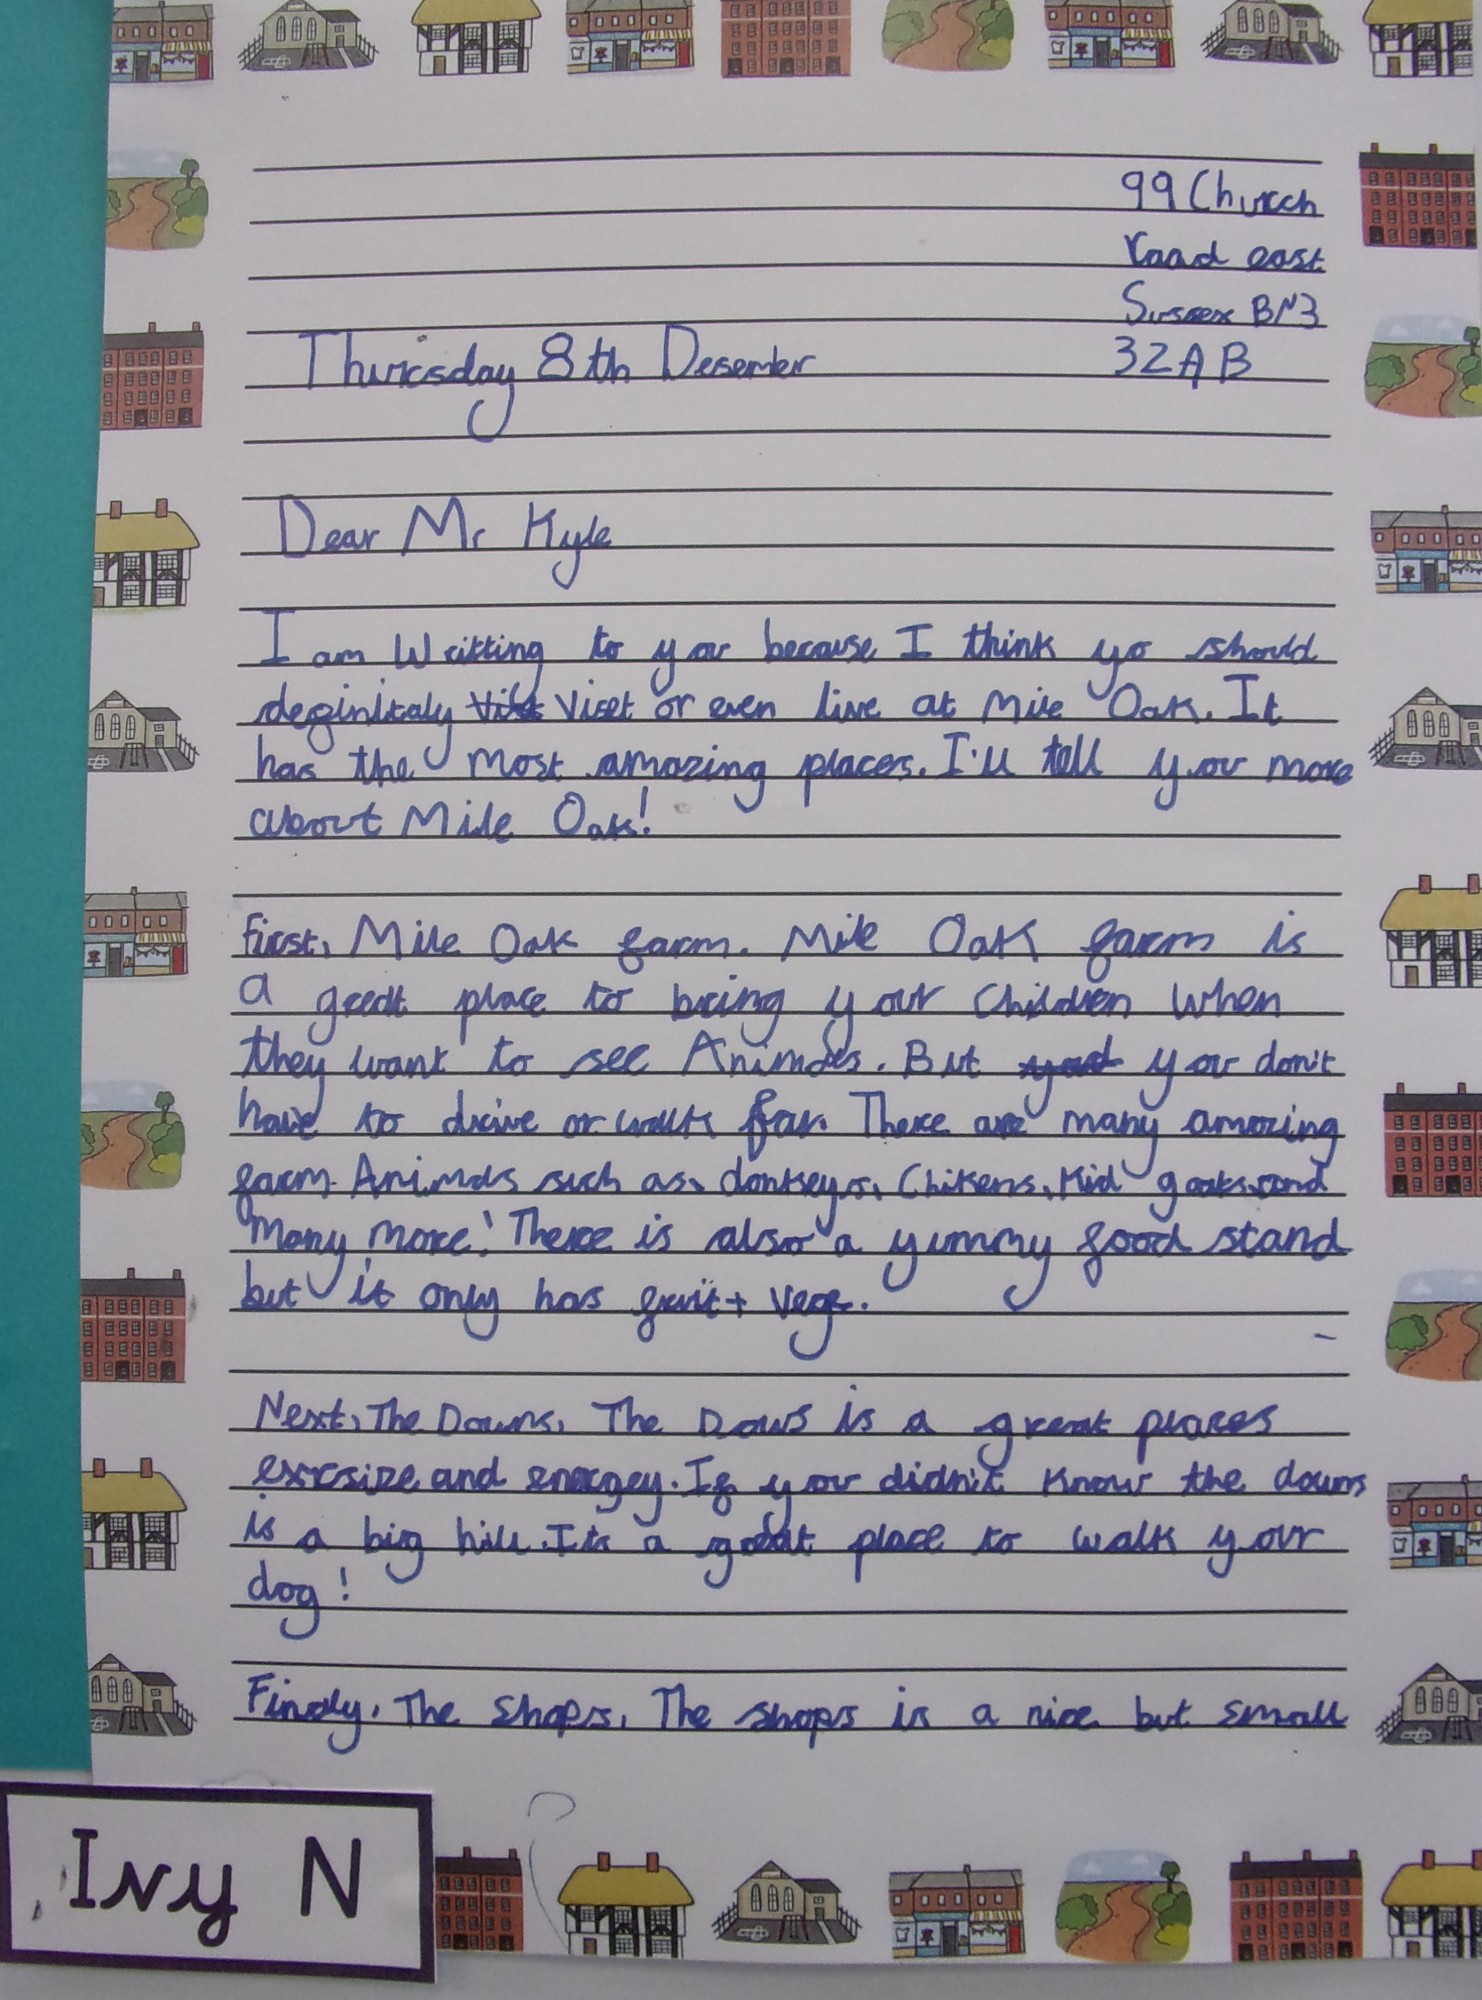 99 Church
road east
Sussex BN3
Thursday 8th Desember 32AB
Dear Mr Kyle
I am Writting to you because I think yo should
definitaly Viset or even live at Mile Oak. It
has the most amazing places. I'll tell you more
about Mile Oak!
First, Mile Oak farm. Mile Oak farm is
a great place to bring your Children When
they want to see Animales. But you don't
have to drive or walk far. There are many amazing
farm Animals such as, donkeys, Chikens, Kid goats and
Many more! There is also a yummy food stand
but it only has fruit + vege.
Next, The Downs, The Dows is a great places
exrcsize and energey. If you didn't know the downs
is a big hill. Its a great place to walk your
dog!
Finaly, The Shops, The shops is a nice but small
Ivy N